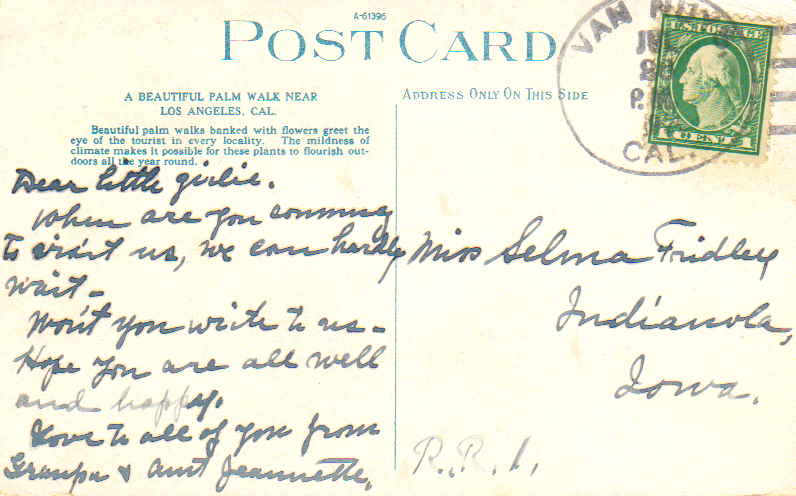 A-61396
POST CARD
A BEAUTIFUL PALM WALK NEAR
LOS ANGELES, CAL.
Beautiful palm walks banked with flowers greet the
eye of the tourist in every locality. The mildness of
climate makes it possible for these plants to flourish out-
doors all the year round.
ADDRESS ONLY ON THIS SIDE
VAN
P.M.
CAL.
U.S. POSTAGE
1 CENT 1
Dear little girlie.
When are you comming
to visit us, we can hardly
wait -
Won't you write to us -
Hope you are all well
and happy.
Love to all of you from
Granpa & Aunt Jeannette.
Miss Selma Fridley
Indianola,
Iowa.
R.R.1.